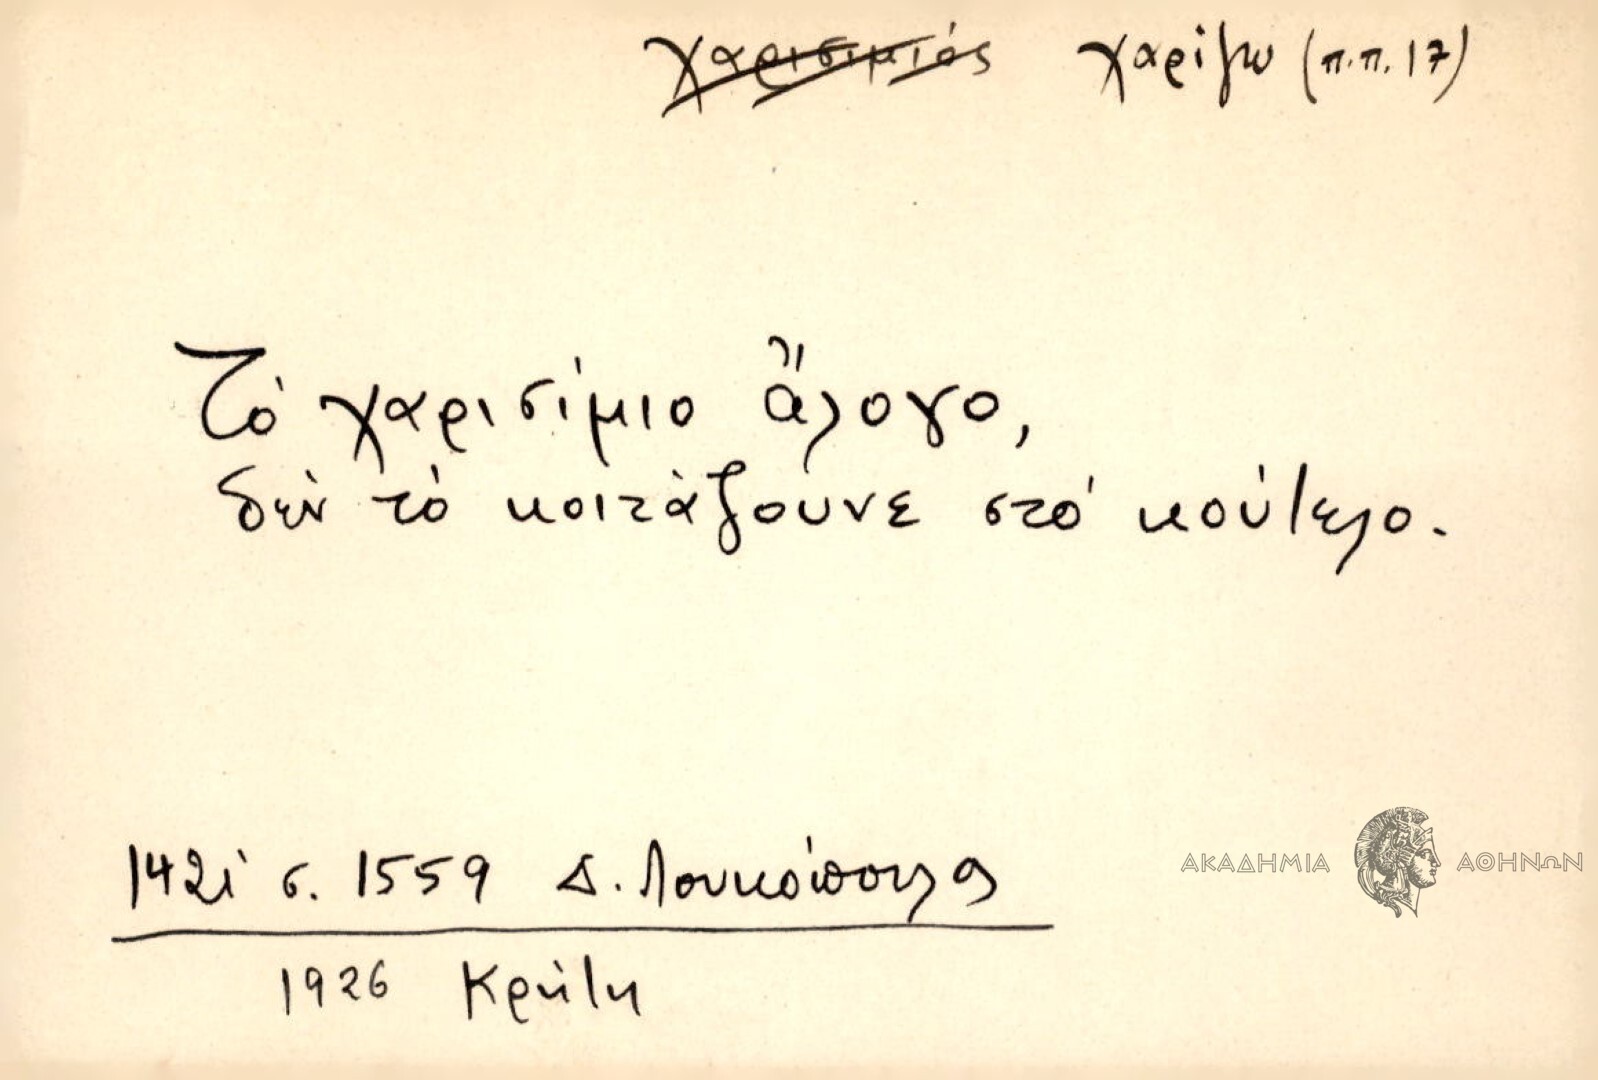 χαρισιμιός χαρίζω (π.π. 17)
Τό χαρισίμιο ἄλογο,
δέν τό κοιτάζουνε στό κούτελο.
142i σ. 1559 Δ. Λουκόπουλος
1926 Κρήτη
ΑΚΑΔΗΜΙΑ ΑΘΗΝΩΝ